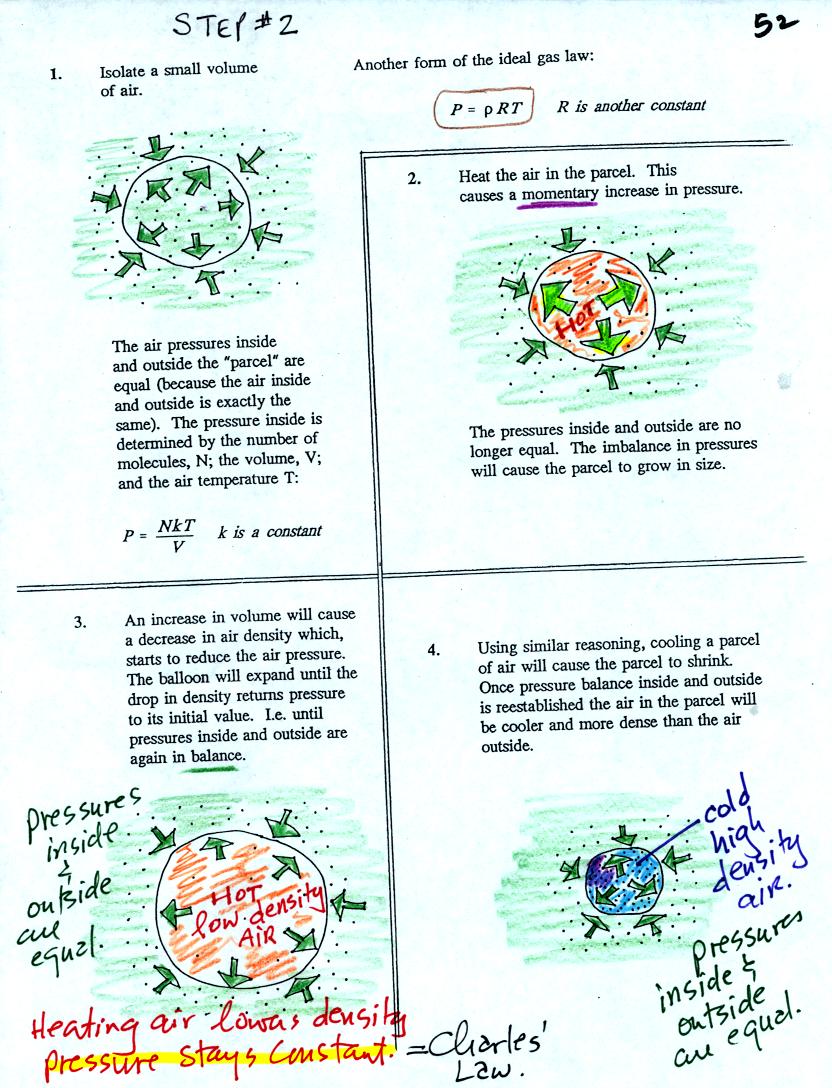 STEP #2
52
1. Isolate a small volume
of air.
Another form of the ideal gas law:
P = ρRT R is another constant
The air pressures inside
and outside the "parcel" are
equal (because the air inside
and outside is exactly the
same). The pressure inside is
determined by the number of
molecules, N; the volume, V;
and the air temperature T:
P = NkT/V k is a constant
2. Heat the air in the parcel. This
causes a momentary increase in pressure.
HOT
The pressures inside and outside are no
longer equal. The imbalance in pressures
will cause the parcel to grow in size.
3. An increase in volume will cause
a decrease in air density which,
starts to reduce the air pressure.
The balloon will expand until the
drop in density returns pressure
to its initial value. I.e. until
pressures inside and outside are
again in balance.
pressures
inside
&
outside
are
equal.
HOT
low density
AIR
Heating air lowers density
pressure stays constant.
= Charles'
Law.
4. Using similar reasoning, cooling a parcel
of air will cause the parcel to shrink.
Once pressure balance inside and outside
is reestablished the air in the parcel will
be cooler and more dense than the air
outside.
cold
high
density
air.
pressures
inside &
outside
are equal.